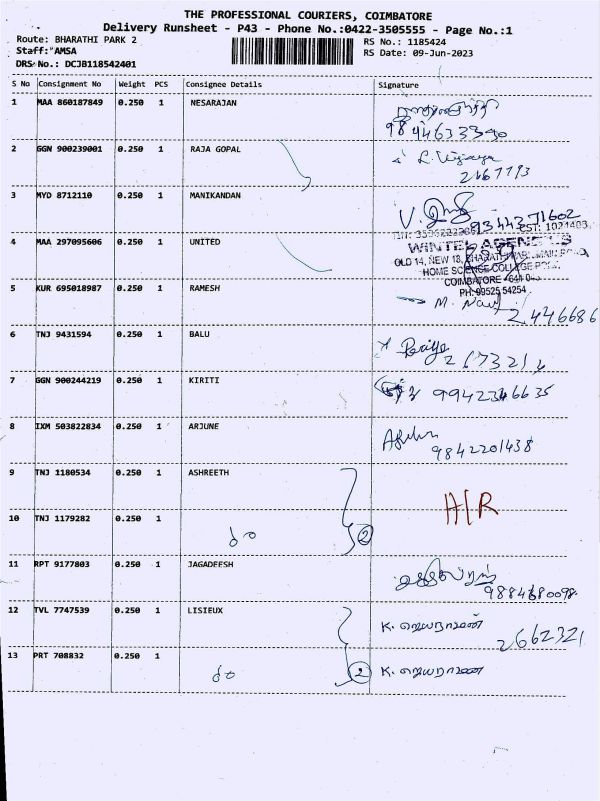 THE PROFESSIONAL COURIERS, COIMBATORE
Delivery Runsheet - P43 - Phone No.:0422-3505555 - Page No.:1
Route: BHARATHI PARK 2
RS No.: 1185424
Staff: AMSA
RS Date: 09-Jun-2023
DRS No.: DCJB118542401
S No Consignment No Weight PCS Consignee Details Signature
1 MAA 860187849 0.250 1 NESARAJAN
9844633390
2 GGN 900239001 0.250 1 RAJA GOPAL
2467793
3 MYD 8712110 0.250 1 MANIKANDAN
V.
9344371602
EST: 1021403
4 MAA 297095606 0.250 1 UNITED
WINTEL AGENCIES
OLD 14, NEW 18, BHARATHI PARK MAIN ROAD,
HOME SCIENCE COLLEGE
COIMBATORE
PH: 99525 54254
5 KUR 695018987 0.250 1 RAMESH
M.
2446686
6 TNJ 9431594 0.250 1 BALU
Priya
7 GGN 900244219 0.250 1 KIRITI
9942346635
8 IXM 503822834 0.250 1 ARJUNE
9842201438
9 TNJ 1180534 0.250 1 ASHREETH
A/R
10 TNJ 1179282 0.250 1
2
11 RPT 9177803 0.250 1 JAGADEESH
9884680098
12 TVL 7747539 0.250 1 LISIEUX
K. ஜெயநாமணி
2662321
13 PRT 708832 0.250 1
2
K. ஜெயநாமணி